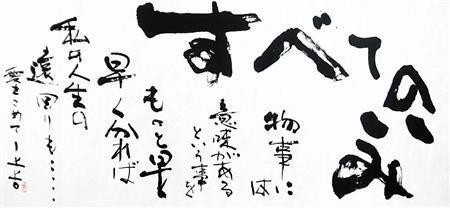 すべてのいみ
物事には
意味がある
という事を
もっと早
早く分れば
私の人生の
遠回りも・・・・・
愛をこめて